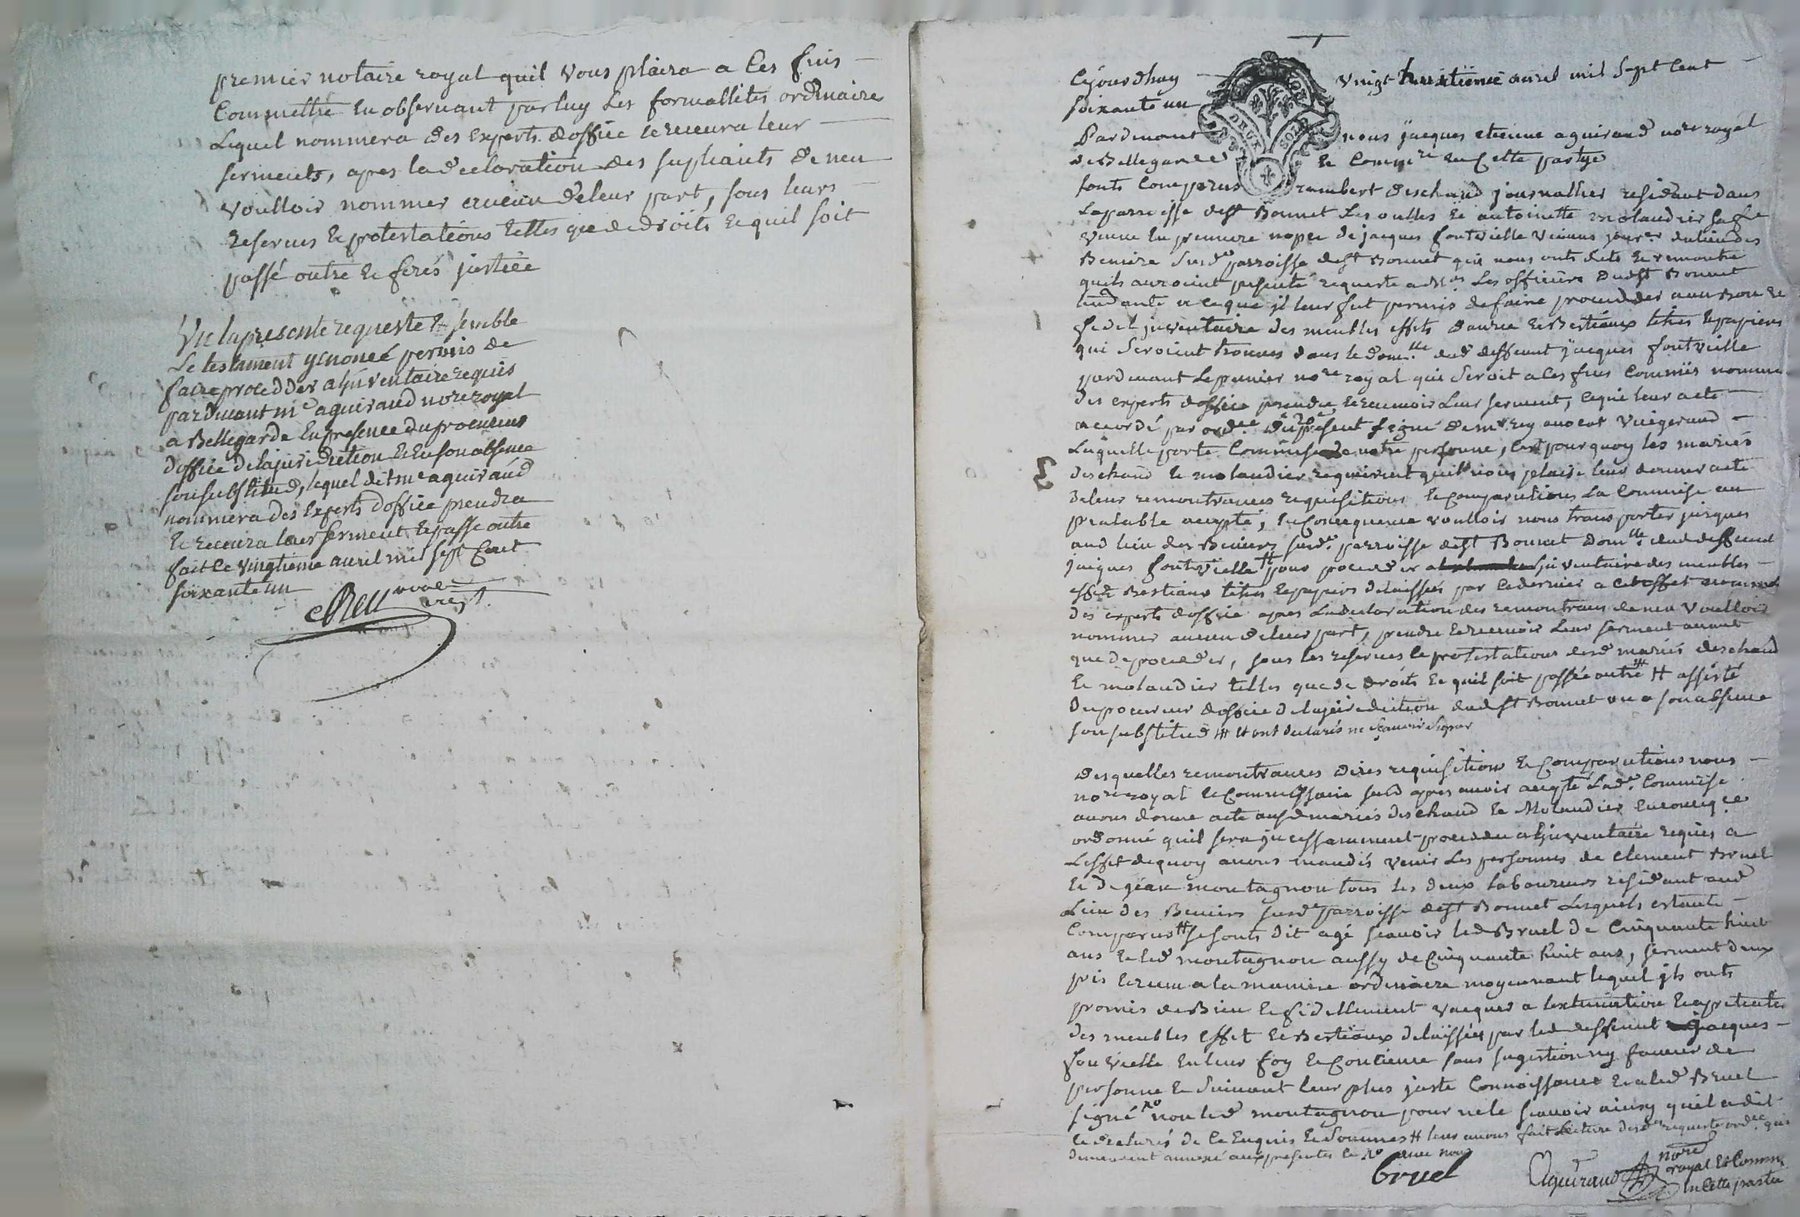 premier notaire royal quil vous plaira a ces fins
Commettre en observant par luy les formallites ordinaire
Lequel nommera des experts doffice recevra leur
serments, apres la declaration des supliants de neu
voulloir nommer aucun de leur part, sous leurs
reserves & protestations telles que de droits & quil soit
passé outre & ferés justice
Vu la presente requeste Ensemble
Le testament y enoncé permis de
faire procedder a linventaire requis
par devant me aguiraud nore royal
a Bellegarde En presence du procureur
doffice de la juridiction & En son absence
son substitud, lequel dit me aguiraud
nommera des Experts doffice prendra
& recevra leur serment & passe outre
fait Ce vingtieme avril mil sept Cent
soixante un
Cejourdhuy vingt huitième avril mil sept Cent
soixante un
DEUX SOLS
Pardevant nous jacques etienne aguiraud nore royal
de Bellegarde & Commre En Cette partye
sonts Comparus rambert deschaud journallier residant dans
La parroisse de st Bonnet Les oulles & antoinette molaudrier
veuve En premiere nopce de jacques fontvielle
Beniere susde parroisse de st Bonnet qui nous onts dits & remontré
quils auroient presenté requeste a Les officiers dud st Bonnet
tendante a ce que il leur fut permis de faire procedder a un Bon &
fidel inventaire des meubles effets danree & Bestiaux titres & papiers
qui seroient trouvés dans le domlle dud deffunt jacques fontvielle
pardevant Le premier nore royal qui seroit a ces fins Commis nommer
des experts doffice prendre & recevoir leur serment, ce qui leur a ete
accordé par ordce du present signé de mr rey avocat
Laquelle porte Commise de notre personne, Cest pourquoy les mariés
deschaud & molaudier requierent quil nous plaise leur donner acte
de leur remontrances requisitions & Comparutions La Commise au
prealable accepté, En Consequence voulloir nous transporter jusques
aud lieu des Beniers susde parroisse de st Bonnet domlle dud deffunt
jacques fontvielle pour procedder a inventaire des meubles
effets Bestiaux titres & papiers delaissés par Ce dernier a Cet effet
des experts doffice apres La declaration des remontrans de neu voulloir
nommer aucun de leur part, prendre & recevoir Leur serment avant
que de procedder, sous les reserves & protestations desd mariés deschaud
& molaudier telles que de droits & quil soit passé outre assisté
du procureur doffice de la jurediction dud st Bonnet ou a son absence
son substitud & ont declarés ne sçavoir signer
Desquelles remontrances Dires requisition & Comparutions nous
nore royal & Commissaire susd apres avoir accepté Lade Commise
avons donné acte ausd mariés deschaud & Molaudier
ordonné quil sera incessamment procedder a linventaire requis a
Leffet de quoy avons mandés venir Les personnes de Clement Bruel
& de jean montagnon tous les deux laboureurs residant aud
Lieu des Beniers susde parroisse de st Bonnet Lesquels estants
Comparus se sonts dit agé sçavoir led Bruel de Cinquante huit
ans & led montagnon aussy de Cinquante huit ans, serment deux
pris & receu a la maniere ordinaire moyennant lequel ils onts
promis de Bien & fidellement vacquer a lextimation &
des meubles effet & Bestiaux delaissés par led deffunt jacques
fonvielle En leur foy & Contience sans sugestion ny faveur de
personne & suivant leur plus juste Connoissance & a led Bruel
signé non led montagnon pour ne le sçavoir ainsy quil a dit
& declarés de Ce Enquis & sommes leur avons fait Lecture desd requeste ordce qui
demeurent annexé aux presentes avec nous
bruel
Aguiraud nore
royal & Comm
En Cette partie